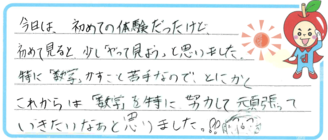 今日は、初めての体験だったけど、
初めて見ると、少し「やって見よう」と思いました。
特に「数学」がすごく苦手なので、とにかく
これからは「数学」を特に努力して頑張って
いきたいなあと思いました。!!